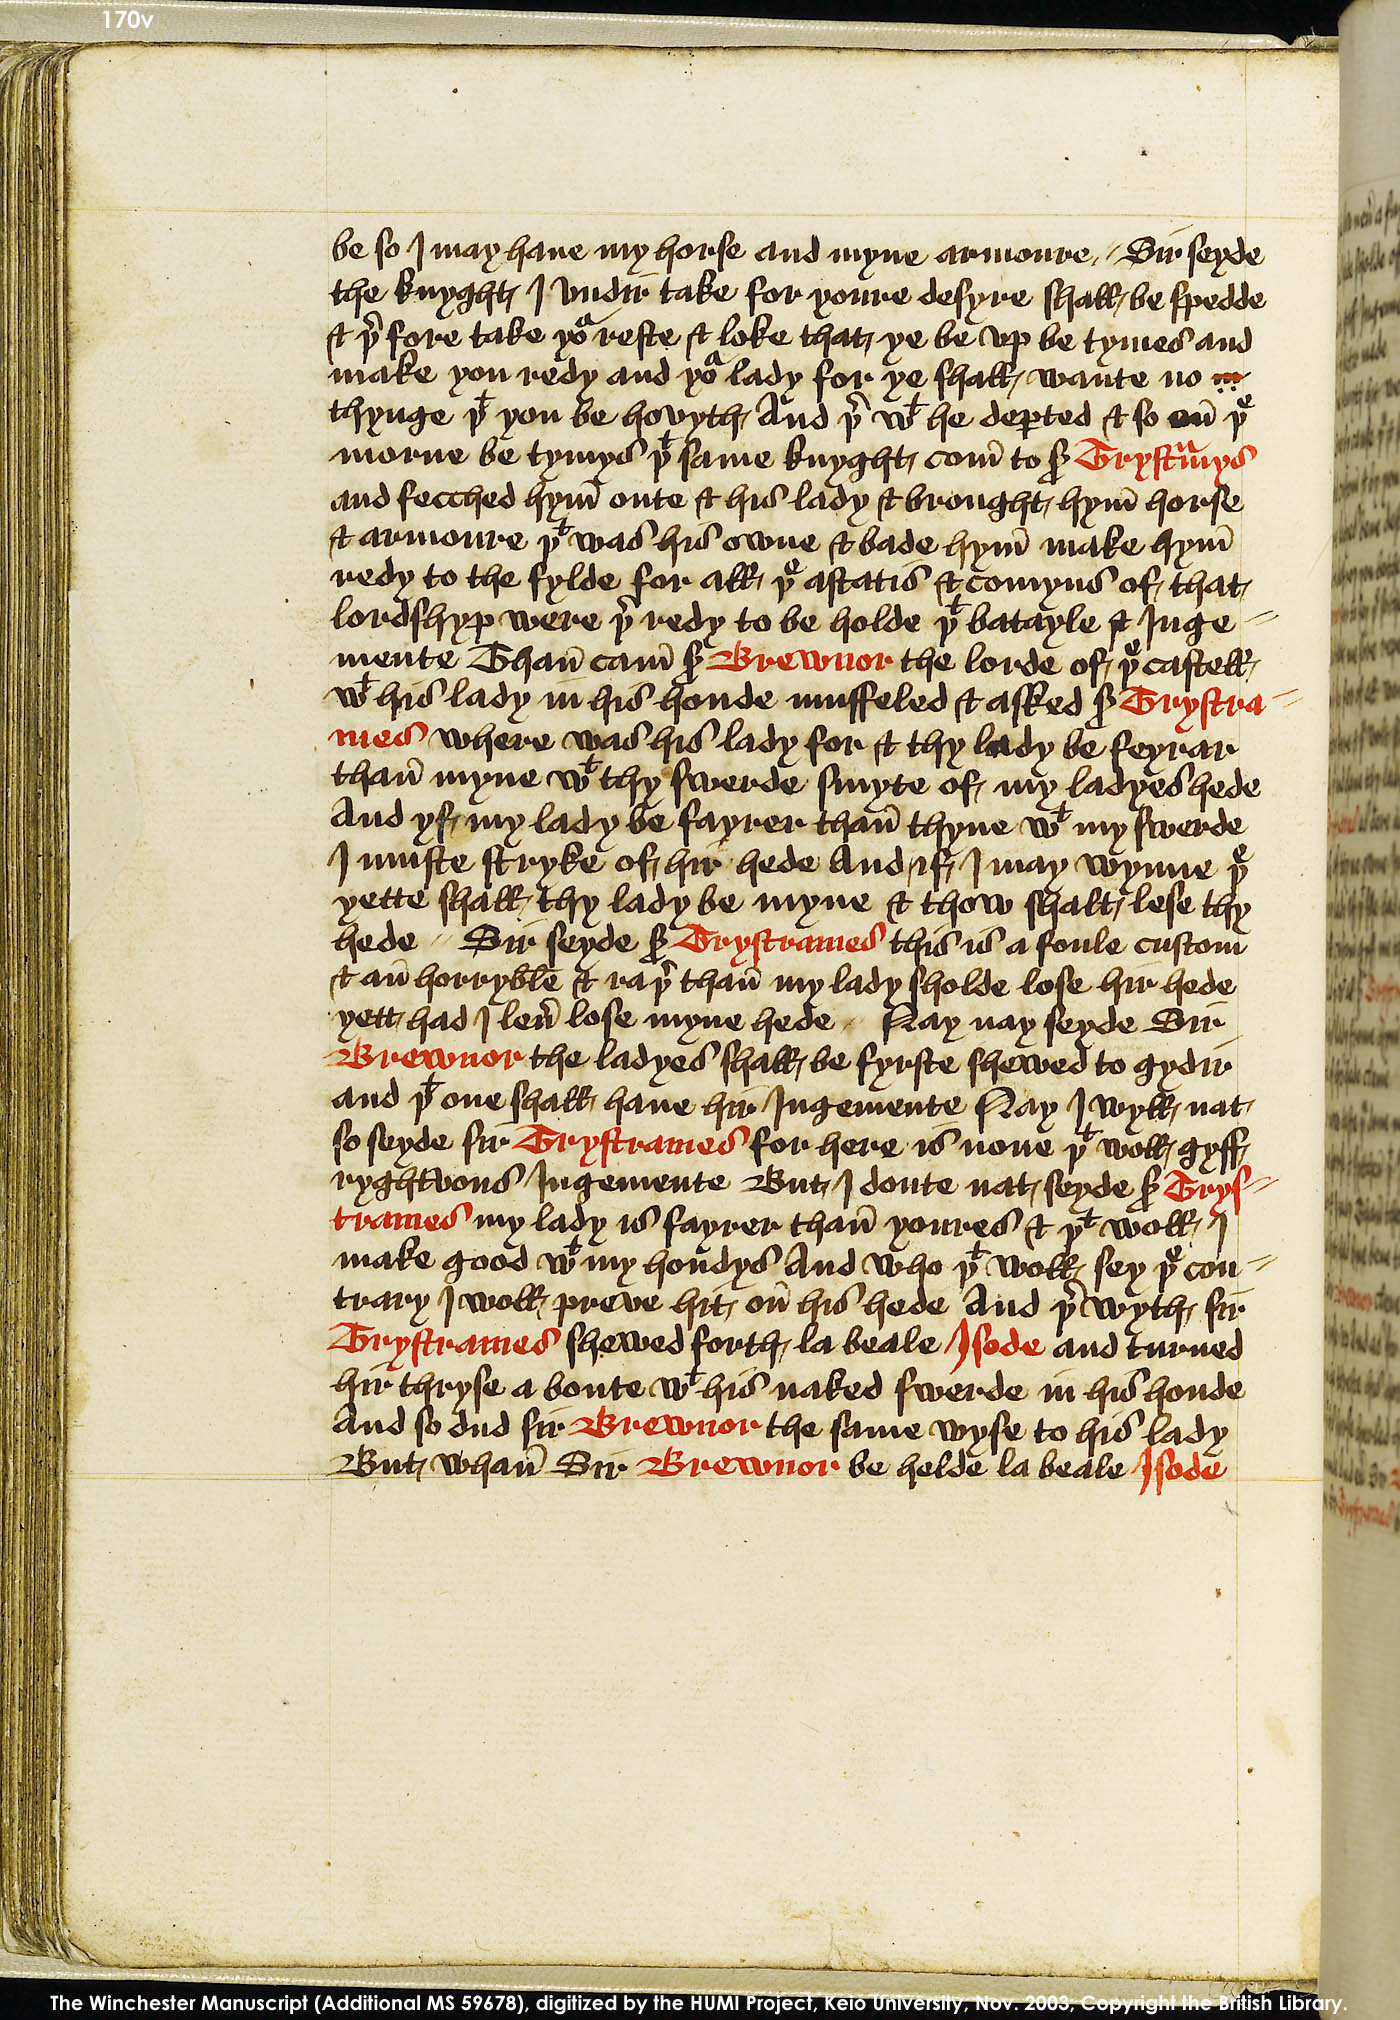 170v
be so I may haue my horse and myne armoure // Sir seyde
the knyght I vndir take for youre desyre shall be spedde
& þͬfore take yoͬ reste & loke that ye be vp be tymes and
make you redy and yoͬ lady for ye shall wante no m
thynge þͭ you be hovyth And þͬ wͭ he dep̱ted & so on̄ þͤ
morne be tymys þͭ same knyght com̄ to sͬ Trystᵃmys
and fecched hym̄ oute & his lady & brought hym̄ horse
& armoure þͭ was his owne & bade hym̄ make hym̄
redy to the fylde for all þͤ astatis & comyns of that
lordshyp were þͬ redy to be holde þͭ batayle & Iuge //
mente Than̄ cam̄ sͬ Brewnor the lorde of þͤ castell
wͭ his lady in his honde muffeled & asked sͬ Trystra //
mes where was his lady for & thy lady be feyrar
than̄ myne wͭ thy swerde smyte of my ladyes hede
And yf my lady be fayrer than̄ thyne wͭ my swerde
I muste stryke of hir hede And if I may wynne þͤ
yette shall thy lady be myne & thow shalt lese thy
hede // Sir seyde sͬ Trystrames this is a foule custom
& an̄ horryble & raþͬ than̄ my lady sholde lose hir hede
yett had I leuͬ lose myne hede // Nay nay seyde Sir
Brewnor the ladyes shall be fyrste shewed to gydir
and þͭ one shall haue hir Iugemente Nay I wyll nat
so seyde sir Trystrames for here is none þͭ woll gyff
ryghtvous Iugemente But I doute nat seyde sͬ Trys //
trames my lady is fayrer than̄ youres & þͭ woll I
make good wͭ my hondys And who þͭ woll sey þͤ con //
trary I woll preve hit on̄ his hede And þͬ wyth sir
Trystrames shewed forth la beale Isode and turned
hir thryse a boute wͭ his naked swerde in his honde
And so dud sir Brewnor the same wyse to his lady
But whan̄ Sir Brewnor be helde la beale Isode
The Winchester Manuscript (Additional MS 59678), digitized by the HUMI Project, Keio University, Nov. 2003; Copyright the British Library.